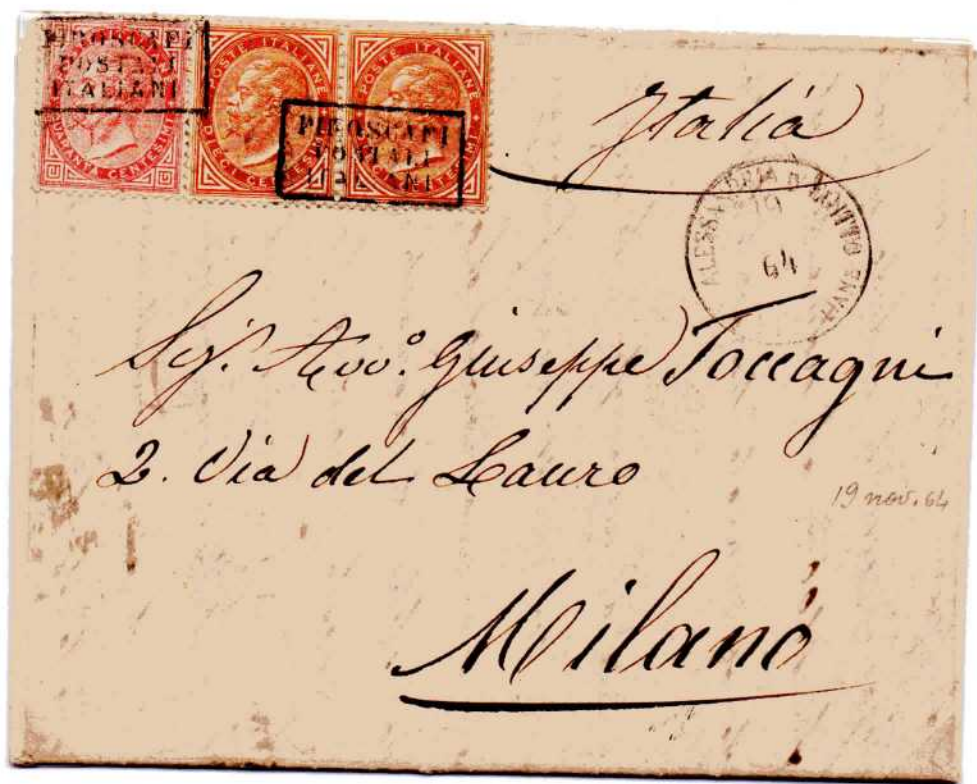 PIROSCAFI
POSTALI
ITALIANI
QUARANTA CENTESIMI
POSTE ITALIANE
DIECI CENTESIMI
POSTE ITALIANE
PIROSCAFI
POSTALI
ITALIANI
Italia
ALESSANDRIA D'EGITTO
19
64
Sig. Avv.º Giuseppe Toccagni
2. Via del Lauro
19 nov. 64
Milano